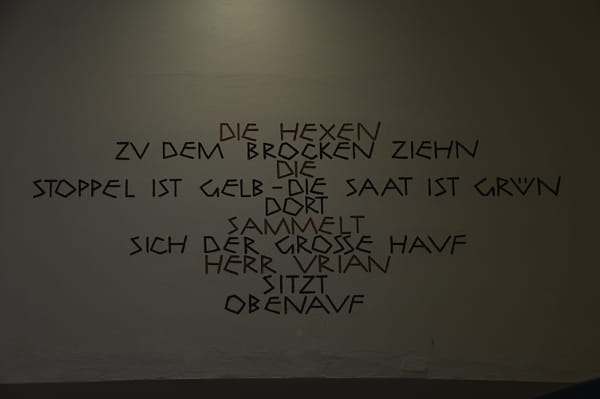 DIE HEXEN
ZV DEM BROCKEN ZIEHN
DIE
STOPPEL IST GELB-DIE SAAT IST GRÜN
DORT
SAMMELT
SICH DER GROSSE HAVF
HERR VRIAN
SITZT
OBENAVF